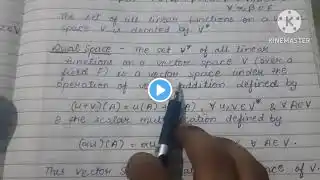 ∀ α,β ∈ F
The set of all linear functions on a
space V is denoted by V*
KINEMASTER
Dual Space - The set V* of all linear
functions on a vector space V (over a
field F) is a vector space under the
operation of addition defined by
(u+v)(A) = u(A) + (A), ∀ u,v ∈ V* & ∀ A ∈ V
& the scalar multiplication defined by
(αu)(A) = ∀ A ∈ V
This vector of V